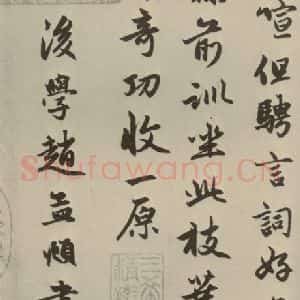 喧但騁言詞好
前訓坐此枝葉
奇功收一原
後學趙孟頫書
Shufawang.cn